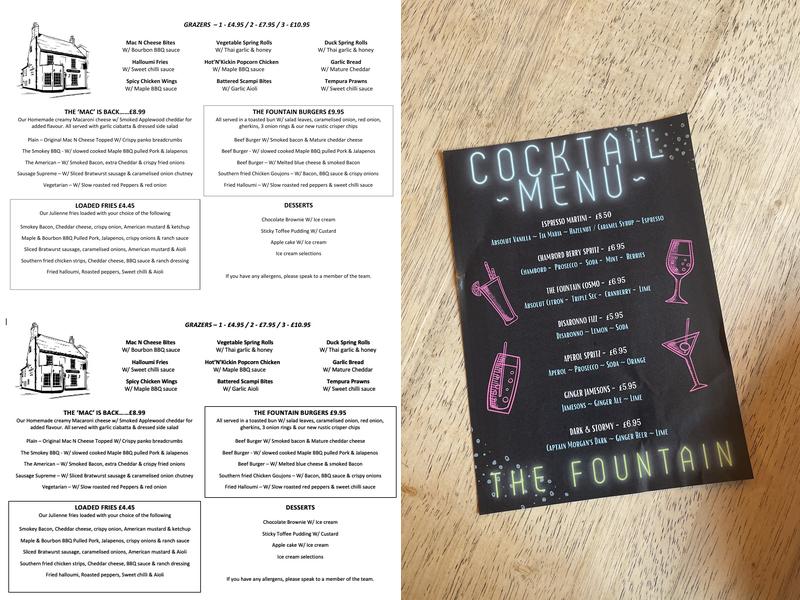 GRAZERS – 1 - £4.95 / 2 - £7.95 / 3 - £10.95
Mac N Cheese Bites
W/ Bourbon BBQ sauce
Vegetable Spring Rolls
W/ Thai garlic & honey
Duck Spring Rolls
W/ Thai garlic & honey
Halloumi Fries
W/ Sweet chilli sauce
Hot'N'Kickin Popcorn Chicken
W/ Maple BBQ sauce
Garlic Bread
W/ Mature Cheddar
Spicy Chicken Wings
W/ Maple BBQ sauce
Battered Scampi Bites
W/ Garlic Aioli
Tempura Prawns
W/ Sweet chilli sauce
THE 'MAC' IS BACK……£8.99
Our Homemade creamy Macaroni cheese w/ Smoked Applewood cheddar for
added flavour. All served with garlic ciabatta & dressed side salad
Plain – Original Mac N Cheese Topped W/ Crispy panko breadcrumbs
The Smokey BBQ - W/ slowed cooked Maple BBQ pulled Pork & Jalapenos
The American – W/ Smoked Bacon, extra Cheddar & crispy fried onions
Sausage Supreme – W/ Sliced Bratwurst sausage & caramelised onion chutney
Vegetarian – W/ Slow roasted red Peppers & red onion
THE FOUNTAIN BURGERS £9.95
All served in a toasted bun W/ salad leaves, caramelised onion, red onion,
gherkins, 3 onion rings & our new rustic crisper chips
Beef Burger W/ Smoked bacon & Mature cheddar cheese
Beef Burger - W/ slowed cooked Maple BBQ pulled Pork & Jalapenos
Beef Burger – W/ Melted blue cheese & smoked Bacon
Southern fried Chicken Goujons – W/ Bacon, BBQ sauce & crispy onions
Fried Halloumi – W/ Slow roasted red peppers & sweet chilli sauce
LOADED FRIES £4.45
Our Julienne fries loaded with your choice of the following
Smokey Bacon, Cheddar cheese, crispy onion, American mustard & ketchup
Maple & Bourbon BBQ Pulled Pork, Jalapenos, crispy onions & ranch sauce
Sliced Bratwurst sausage, caramelised onions, American mustard & Aioli
Southern fried chicken strips, Cheddar cheese, BBQ sauce & ranch dressing
Fried halloumi, Roasted peppers, Sweet chilli & Aioli
DESSERTS
Chocolate Brownie W/ Ice cream
Sticky Toffee Pudding W/ Custard
Apple cake W/ Ice cream
Ice cream selections
If you have any allergens, please speak to a member of the team.
GRAZERS – 1 - £4.95 / 2 - £7.95 / 3 - £10.95
Mac N Cheese Bites
W/ Bourbon BBQ sauce
Vegetable Spring Rolls
W/ Thai garlic & honey
Duck Spring Rolls
W/ Thai garlic & honey
Halloumi Fries
W/ Sweet chilli sauce
Hot'N'Kickin Popcorn Chicken
W/ Maple BBQ sauce
Garlic Bread
W/ Mature Cheddar
Spicy Chicken Wings
W/ Maple BBQ sauce
Battered Scampi Bites
W/ Garlic Aioli
Tempura Prawns
W/ Sweet chilli sauce
THE 'MAC' IS BACK……£8.99
Our Homemade creamy Macaroni cheese w/ Smoked Applewood cheddar for
added flavour. All served with garlic ciabatta & dressed side salad
Plain – Original Mac N Cheese Topped W/ Crispy panko breadcrumbs
The Smokey BBQ - W/ slowed cooked Maple BBQ pulled Pork & Jalapenos
The American – W/ Smoked Bacon, extra Cheddar & crispy fried onions
Sausage Supreme – W/ Sliced Bratwurst sausage & caramelised onion chutney
Vegetarian – W/ Slow roasted red Peppers & red onion
THE FOUNTAIN BURGERS £9.95
All served in a toasted bun W/ salad leaves, caramelised onion, red onion,
gherkins, 3 onion rings & our new rustic crisper chips
Beef Burger W/ Smoked bacon & Mature cheddar cheese
Beef Burger - W/ slowed cooked Maple BBQ pulled Pork & Jalapenos
Beef Burger – W/ Melted blue cheese & smoked Bacon
Southern fried Chicken Goujons – W/ Bacon, BBQ sauce & crispy onions
Fried Halloumi – W/ Slow roasted red peppers & sweet chilli sauce
LOADED FRIES £4.45
Our Julienne fries loaded with your choice of the following
Smokey Bacon, Cheddar cheese, crispy onion, American mustard & ketchup
Maple & Bourbon BBQ Pulled Pork, Jalapenos, crispy onions & ranch sauce
Sliced Bratwurst sausage, caramelised onions, American mustard & Aioli
Southern fried chicken strips, Cheddar cheese, BBQ sauce & ranch dressing
Fried halloumi, Roasted peppers, Sweet chilli & Aioli
DESSERTS
Chocolate Brownie W/ Ice cream
Sticky Toffee Pudding W/ Custard
Apple cake W/ Ice cream
Ice cream selections
If you have any allergens, please speak to a member of the team.
COCKTAIL
~MENU~
ESPRESSO MARTINI - £8.50
ABSOLUT VANILLA ~ TIA MARIA ~ HAZELNUT / CARAMEL SYRUP ~ ESPRESSO
CHAMBORD BERRY SPRITZ - £6.95
CHAMBORD - PROSECCO - SODA - MINT - BERRIES
THE FOUNTAIN COSMO - £6.95
ABSOLUT CITRON - TRIPLE SEC - CRANBERRY - LIME
DISARONNO FIZZ - £5.95
DISARONNO ~ LEMON ~ SODA
APEROL SPRITZ - £6.95
APEROL ~ PROSECCO ~ SODA ~ ORANGE
GINGER JAMESONS - £5.95
JAMESONS ~ GINGER ALE ~ LIME
DARK & STORMY - £6.95
CAPTAIN MORGAN'S DARK ~ GINGER BEER ~ LIME
THE FOUNTAIN